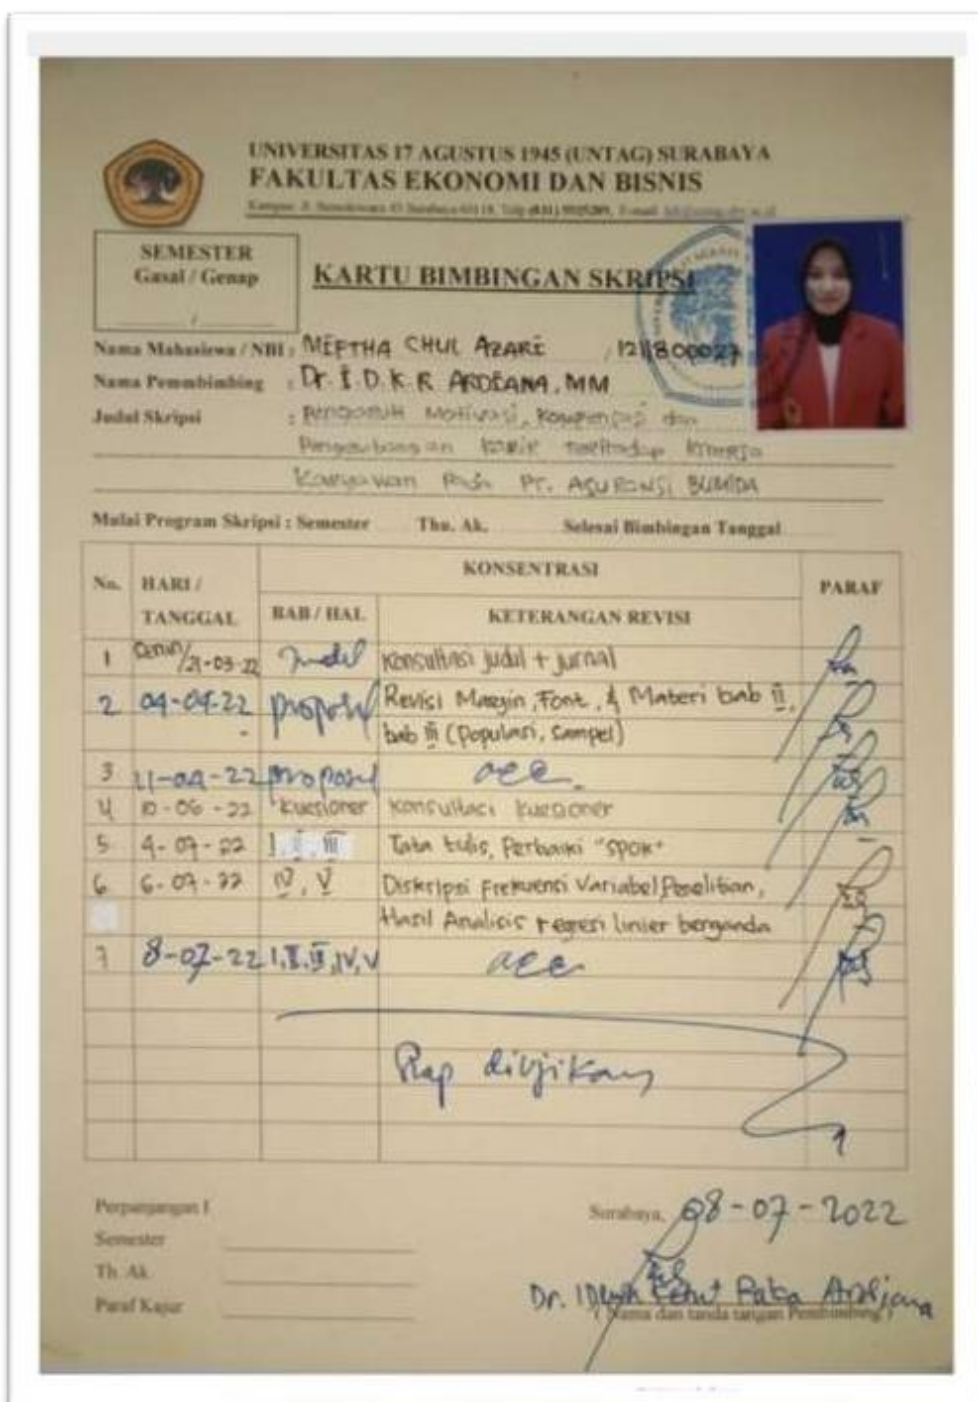 UNIVERSITAS 17 AGUSTUS 1945 (UNTAG) SURABAYA
FAKULTAS EKONOMI DAN BISNIS
SEMESTER
Gasal / Genap
/
KARTU BIMBINGAN SKRIPSI
Nama Mahasiswa / NBI : MIFTHA CHUL AZARI / 1211800027
Nama Pemmbimbing : Dr. I.D.K.R ARDIANA, MM
Judul Skripsi : Pengaruh Motivasi, Kompensasi dan
Pengembangan karir Terhadap Kinerja
Karyawan Pada PT. ASURANSI BUMIDA
Mulai Program Skripsi : Semester Thn. Ak. Selesai Bimbingan Tanggal
No. HARI / TANGGAL KONSENTRASI PARAF
BAB / HAL KETERANGAN REVISI
1 Senin/21-03-22 Judul Konsultasi judul + jurnal
2 04-04-22 proposal Revisi Margin, Font, & Materi bab II,
bab III (Populasi, Sampel)
3 11-04-22 proposal acc
4 10-06-22 Kuesioner Konsultasi kuesioner
5 4-07-22 I, II, III Tata tulis, Perbaiki "SPOK"
6 6-07-22 IV, V Diskripsi Frekuensi Variabel Penelitian,
Hasil Analisis regresi linier berganda
7 8-07-22 I, II, III, IV, V acc
Siap diujikan
Perpanjangan I
Surabaya, 08-07-2022
Semester
Th. Ak.
Paraf Kajur
Dr. I Ketut Raka Ardiana
( Nama dan tanda tangan Pembimbing )